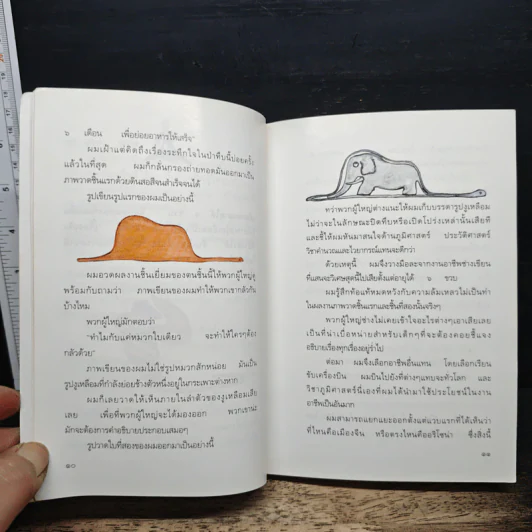 ๖ เดือน เพื่อย่อยอาหารให้เสร็จ"
ผมเฝ้าแต่คิดถึงเรื่องระทึกใจในป่าทึบนี้บ่อยครั้ง
แล้วในที่สุด ผมก็กลั่นกรองถ่ายทอดมันออกมาเป็น
ภาพวาดชิ้นแรกด้วยดินสอสีจนสำเร็จจนได้
รูปเขียนรูปแรกของผมเป็นอย่างนี้
ผมอวดผลงานชิ้นเยี่ยมของตนชิ้นนี้ให้พวกผู้ใหญ่ดู
พร้อมกับถามว่า ภาพเขียนของผมทำให้พวกเขากลัวกัน
บ้างไหม
พวกผู้ใหญ่มักตอบว่า
"ทำไมกับแค่หมวกใบเดียว จะทำให้ใครๆต้อง
กลัวด้วย"
ภาพเขียนของผมไม่ใช่รูปหมวกสักหน่อย มันเป็น
รูปงูเหลือมที่กำลังย่อยช้างตัวหนึ่งอยู่ในกระเพาะต่างหาก
ผมก็เลยวาดให้เห็นภายในลำตัวของงูเหลือมเสีย
เลย เพื่อที่พวกผู้ใหญ่จะได้มองออก พวกเขาน่ะ
มักจะต้องการคำอธิบายประกอบเสมอๆ
รูปวาดใบที่สองของผมออกมาเป็นอย่างนี้
๑๐
ทว่าพวกผู้ใหญ่ต่างแนะให้ผมเก็บบรรดารูปงูเหลือม
ไม่ว่าจะในลักษณะปิดทึบหรือเปิดโปร่งเหล่านั้นเสียที
และชี้ให้ผมหันมาสนใจด้านภูมิศาสตร์ ประวัติศาสตร์
วิชาคำนวณและไวยากรณ์แทนจะดีกว่า
ด้วยเหตุนี้ ผมจึงวางมือละจากงานอาชีพช่างเขียน
ที่แสนจะวิเศษสุดนี้ไปเสียตั้งแต่อายุได้ ๖ ขวบ
ผมรู้สึกท้อแท้หมดหวังกับความล้มเหลวไม่เป็นท่า
ในผลงานภาพวาดชิ้นแรกและชิ้นที่สองนั้นจริงๆ
พวกผู้ใหญ่ช่างไม่เคยเข้าใจอะไรต่างๆเอาเสียเลย
เป็นที่น่าเบื่อหน่ายสำหรับเด็กๆที่จะต้องคอยชี้แจง
อธิบายเรื่องทุกเรื่องอยู่ร่ำไป
ต่อมา ผมจึงเลือกอาชีพอื่นแทน โดยเลือกเรียน
ขับเครื่องบิน ผมบินไปยังที่ต่างๆแทบจะทั่วโลก และ
วิชาภูมิศาสตร์นี่เองที่ผมได้นำมาใช้ประโยชน์ในงาน
อาชีพเป็นอันมาก
ผมสามารถแยกแยะออกตั้งแต่แวบแรกที่ได้เห็นว่า
ที่ไหนคือเมืองจีน หรือตรงไหนคืออริโซน่า ซึ่งสิ่งนี้
๑๑